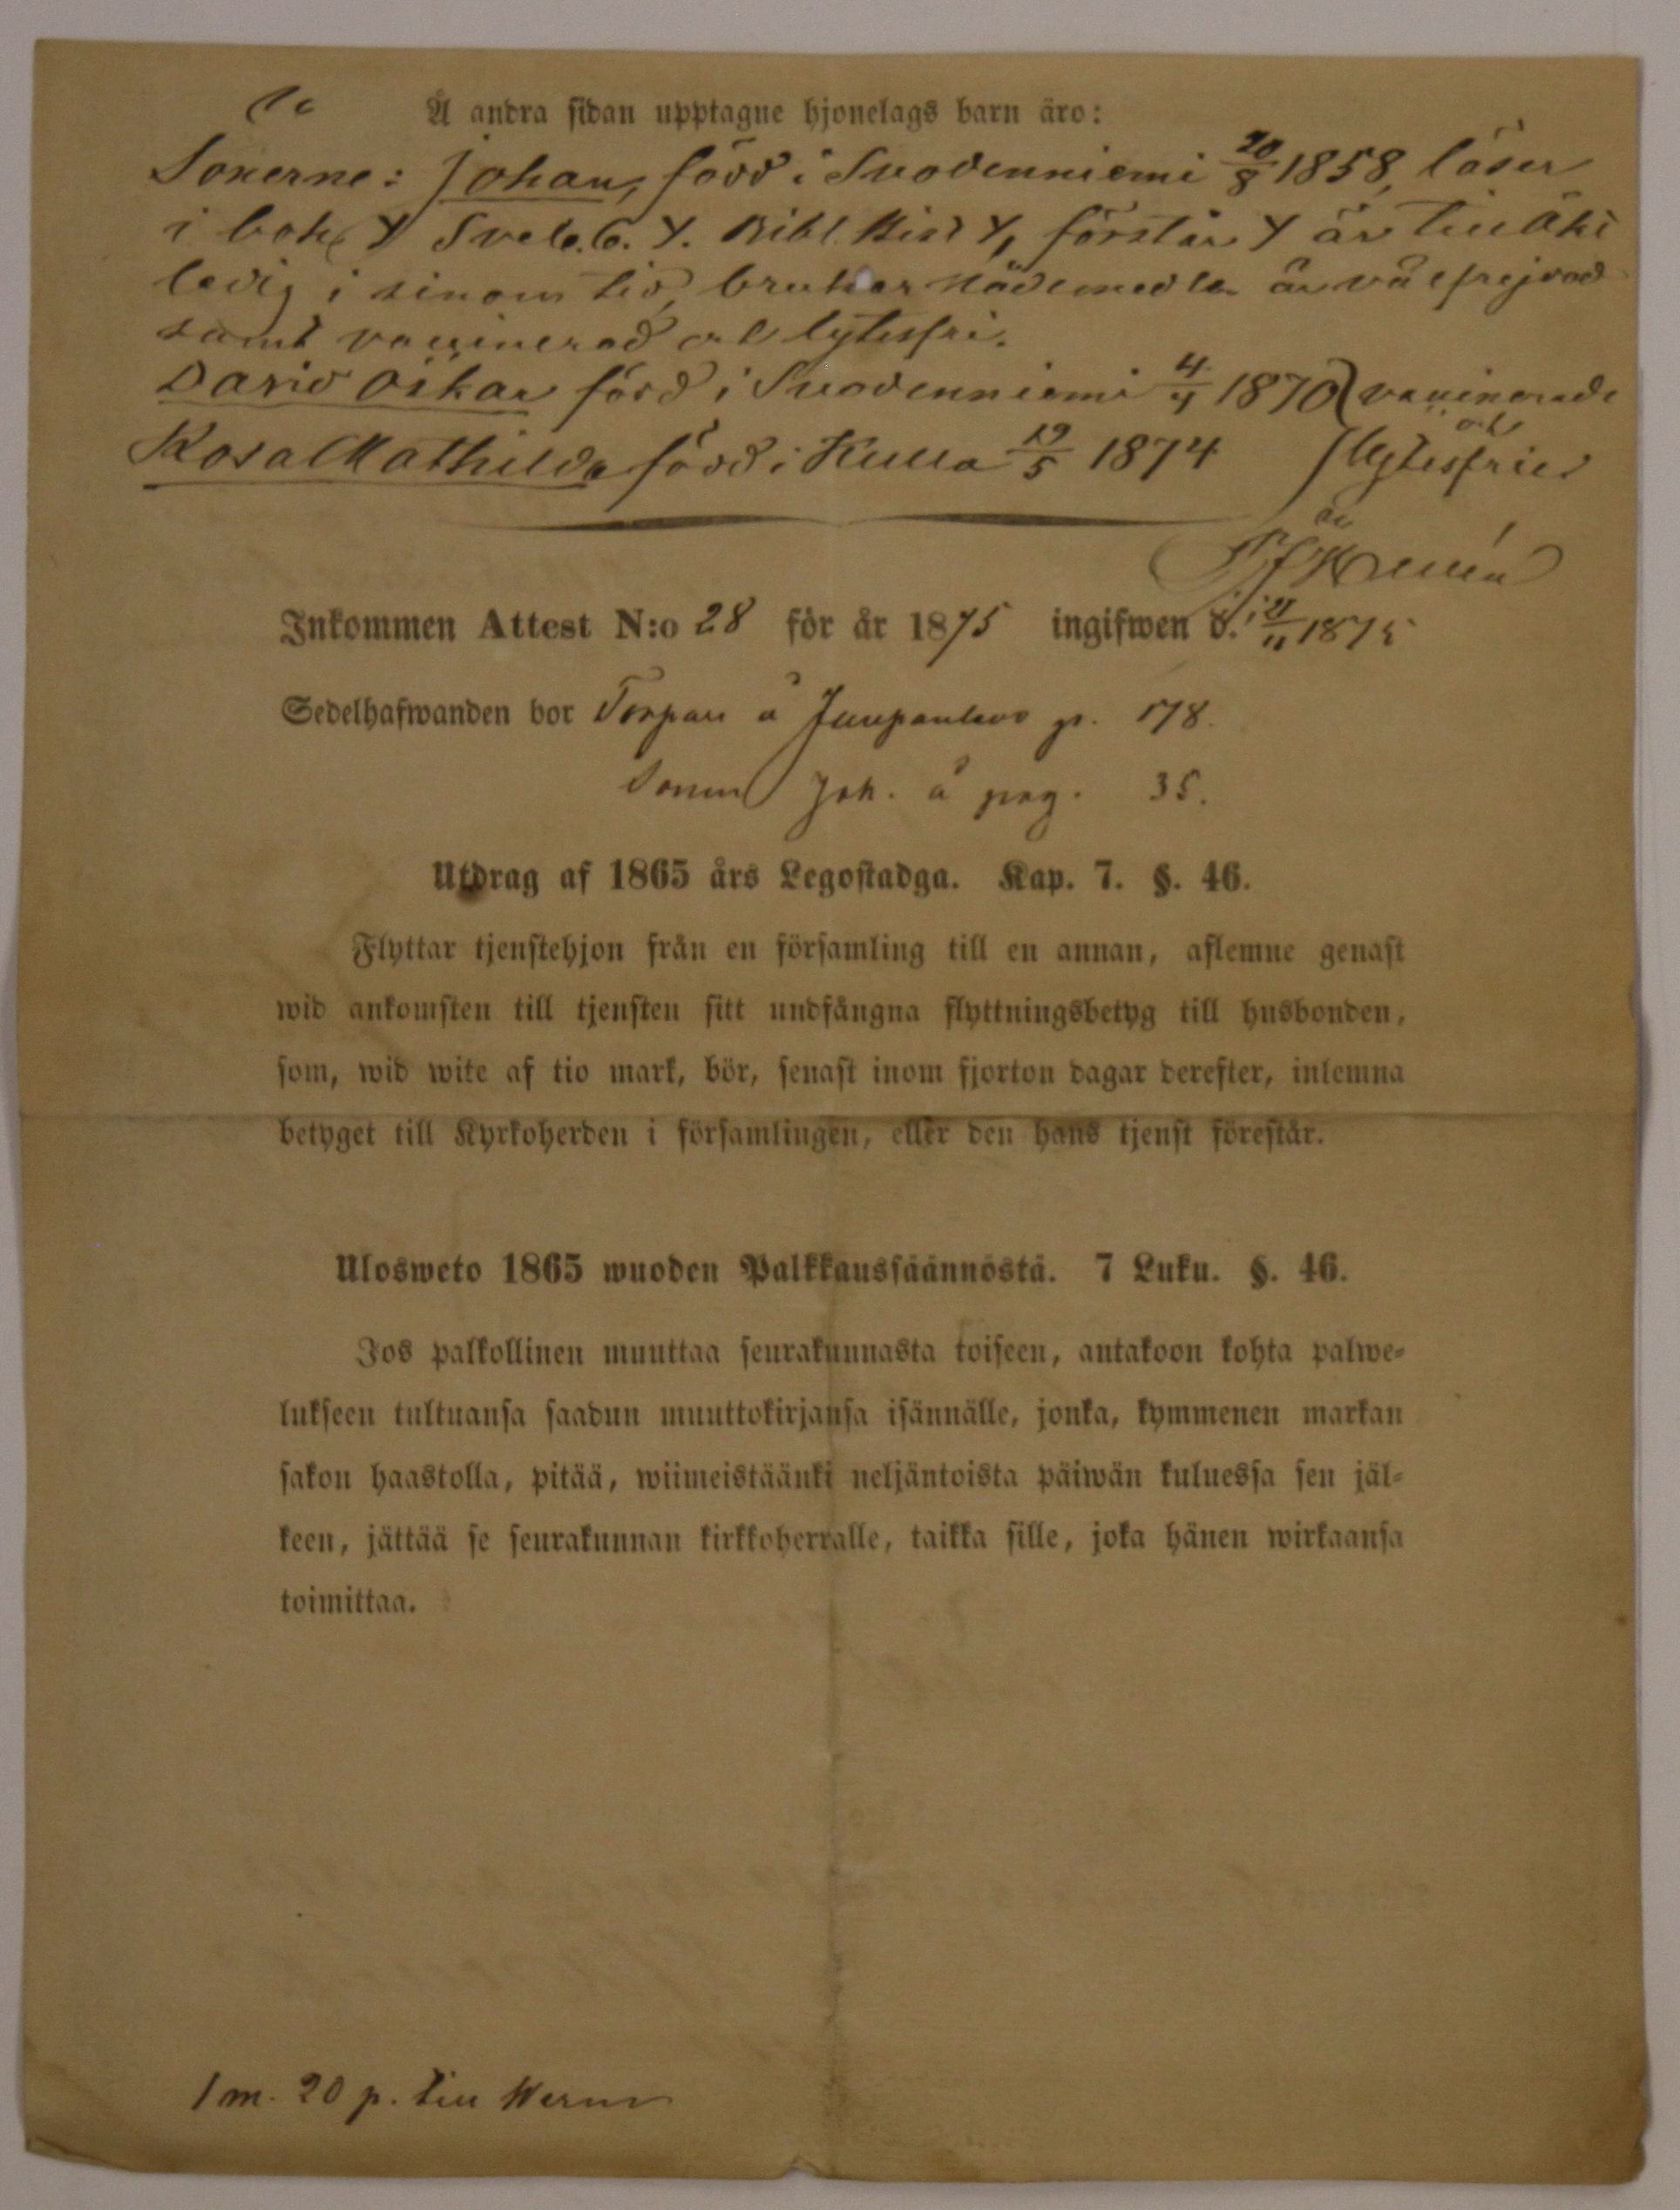 Å andra sidan upptagne hjonelags barn äro:
Sönerne: Johan, född i Suodenniemi 20/8 1858, läser
i bok y Sveb. 6. y. Bibl. Hist y, förstår y är till äkt
ledig i sinom tid, brukar nådemedlen är välfrejdad
samt vaccinerad och lytesfri.
David Oskar född i Suodenniemi 4/4 1870 vaccinerade
och
Rosa Mathilda född i Kulla 19/5 1874 lytesfrie
Inkommen Attest N:o 28 för år 1875 ingifwen d. 1875
Sedelhafwanden bor Torpare å p. 178.
Sonen Joh. å pag. 35.
Utdrag af 1865 års Legostadga. Kap. 7. §. 46.
Flyttar tjenstehjon från en församling till en annan, aflemne genast
wid ankomsten till tjensten sitt undfångna flyttningsbetyg till husbonden,
som, wid wite af tio mark, bör, senast inom fjorton dagar derefter, inlemna
betyget till Kyrkoherden i församlingen, eller den hans tjenst förestår.
Ulosweto 1865 wuoden Palkkaussäännöstä. 7 Luku. §. 46.
Jos palkollinen muuttaa seurakunnasta toiseen, antakoon kohta palwe-
lukseen tultuansa saadun muuttokirjansa isännälle, jonka, kymmenen markan
sakon haastolla, pitää, wiimeistäänki neljäntoista päiwän kuluessa sen jäl-
keen, jättää se seurakunnan kirkkoherralle, taikka sille, joka hänen wirkaansa
toimittaa.
1 m. 20 p. till